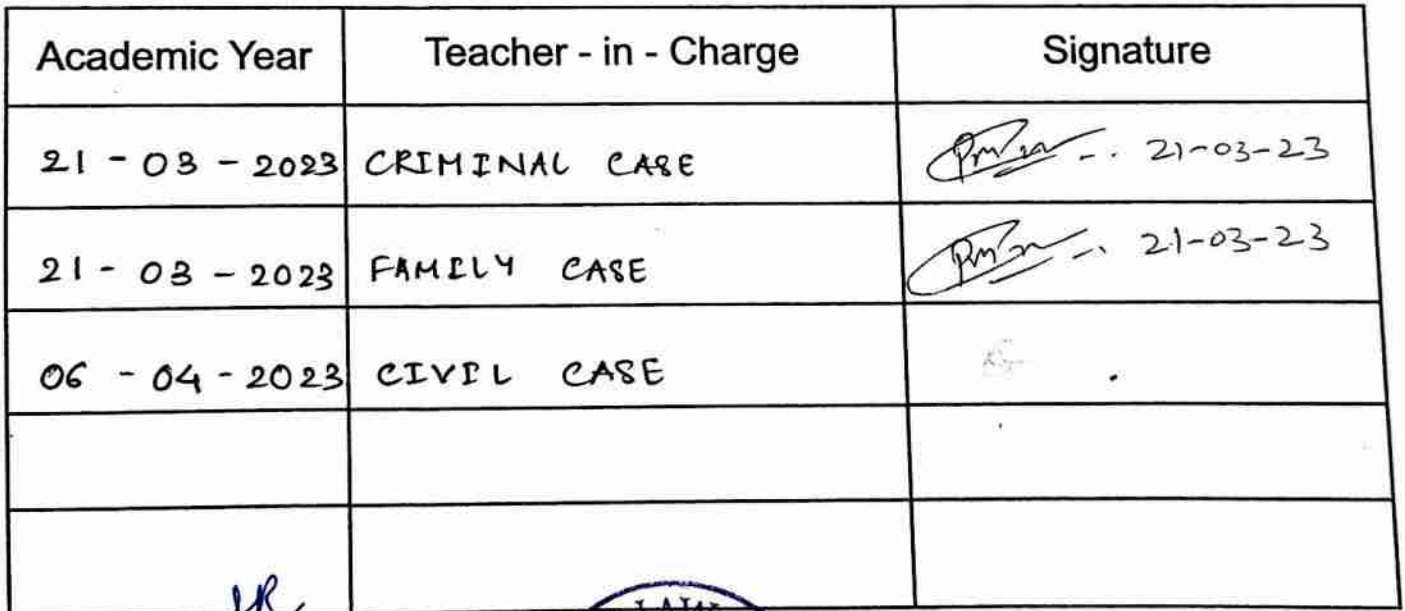 Academic Year Teacher - in - Charge Signature
21 - 03 - 2023 CRIMINAL CASE 21-03-23
21 - 03 - 2023 FAMILY CASE 21-03-23
06 - 04 - 2023 CIVIL CASE
LAW